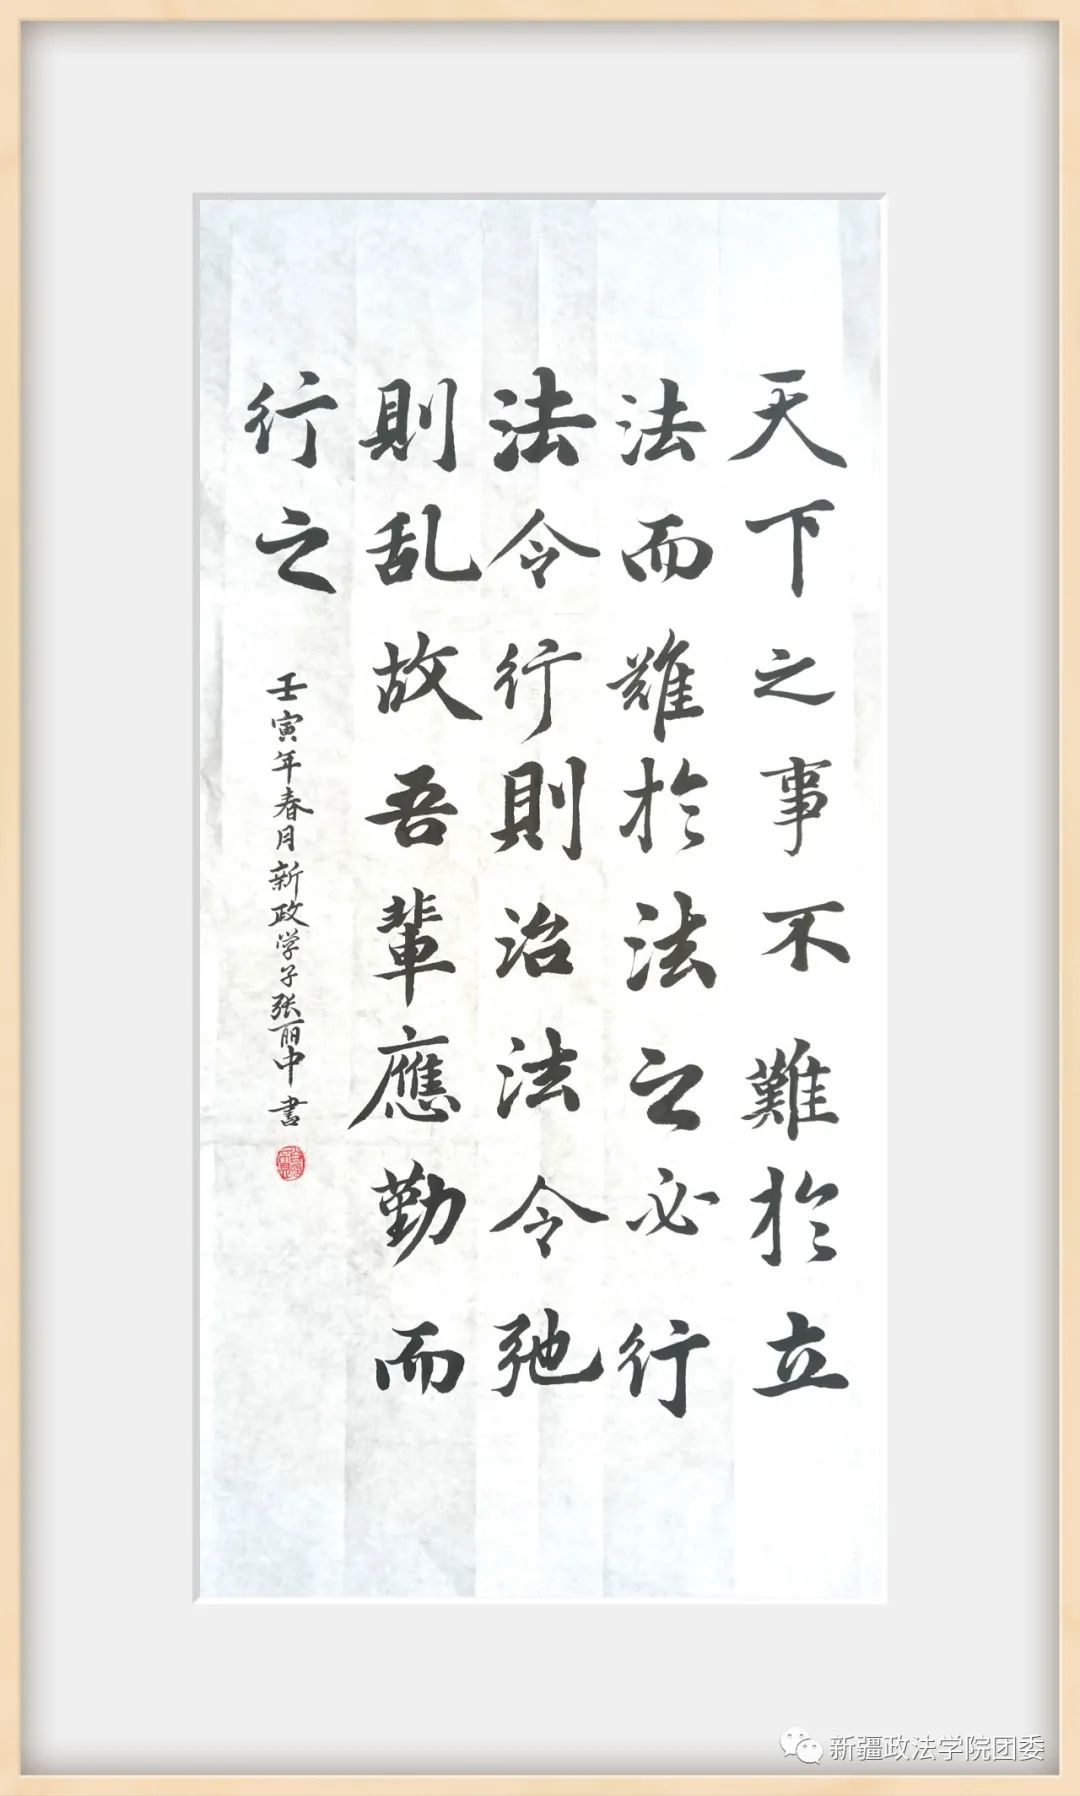 天下之事不難於立
法而難於法之必行
法令行則治法令弛
則乱故吾輩應勤而
行之
壬寅年春月新政学子张丽中書
新疆政法学院团委